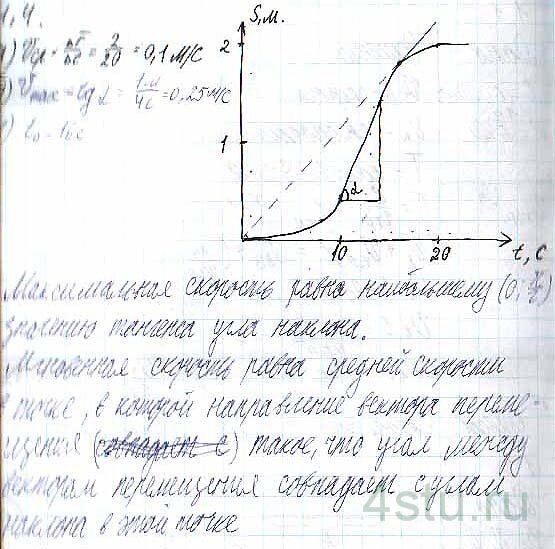 1.4.
S, м.
) Vср = = 2/20 = 0,1 м/с
) Vmax = tg α = 1м/4с = 0,25 м/с
2
1
α
10
20
t, с
Максимальная скорость равна наибольшему (0, π/2)
значению тангенса угла наклона.
Мгновенная скорость равна средней скорости
в точке, в которой направление вектора переме-
щения (совпадает с) такое, что угол между
вектором перемещения совпадает с углом
наклона в этой точке
4stu.ru